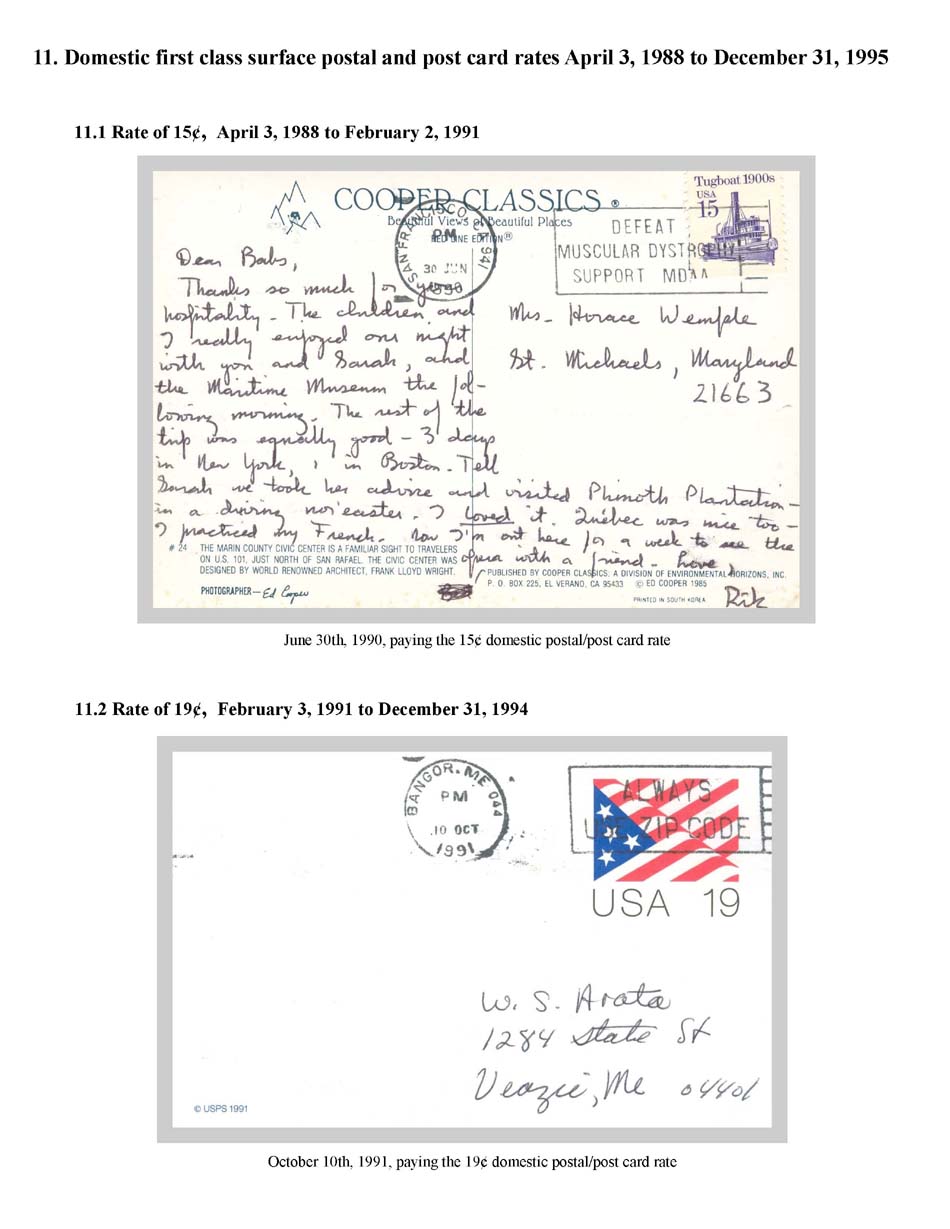 11. Domestic first class surface postal and post card rates April 3, 1988 to December 31, 1995
11.1 Rate of 15¢, April 3, 1988 to February 2, 1991
COOPER CLASSICS ®
Beautiful Views of Beautiful Places
RED LINE EDITION®
SAN FRANCISCO CA 941
PM
30 JUN
1990
Tugboat 1900s
USA
15
DEFEAT
MUSCULAR DYSTROPHY
SUPPORT MDAA
Dear Babs,
Thanks so much for your
hospitality - The children and
I really enjoyed our night
with you and Sarah, and
the Maritime Museum the fol-
lowing morning. The rest of the
trip was equally good - 3 days
in New York, in Boston. Tell
Sarah we took her advice and visited Plimoth Plantation -
in a driving nor'easter. I loved it. Québec was nice too -
I practiced my French. Now I'm out here for a week to see the
opera with a friend. Love,
Rik
Mrs. Horace Wemple
St. Michaels, Maryland
21663
# 24 THE MARIN COUNTY CIVIC CENTER IS A FAMILIAR SIGHT TO TRAVELERS
ON U.S. 101, JUST NORTH OF SAN RAFAEL. THE CIVIC CENTER WAS
DESIGNED BY WORLD RENOWNED ARCHITECT, FRANK LLOYD WRIGHT.
PHOTOGRAPHER — Ed Cooper
PUBLISHED BY COOPER CLASSICS; A DIVISION OF ENVIRONMENTAL HORIZONS, INC.
P. O. BOX 225, EL VERANO, CA 95433 © ED COOPER 1985
PRINTED IN SOUTH KOREA
June 30th, 1990, paying the 15¢ domestic postal/post card rate
11.2 Rate of 19¢, February 3, 1991 to December 31, 1994
BANGOR, ME 044
PM
10 OCT
1991
ALWAYS
USE ZIP CODE
USA 19
W. S. Arata
1284 State St
Veazie, Me 04401
© USPS 1991
October 10th, 1991, paying the 19¢ domestic postal/post card rate